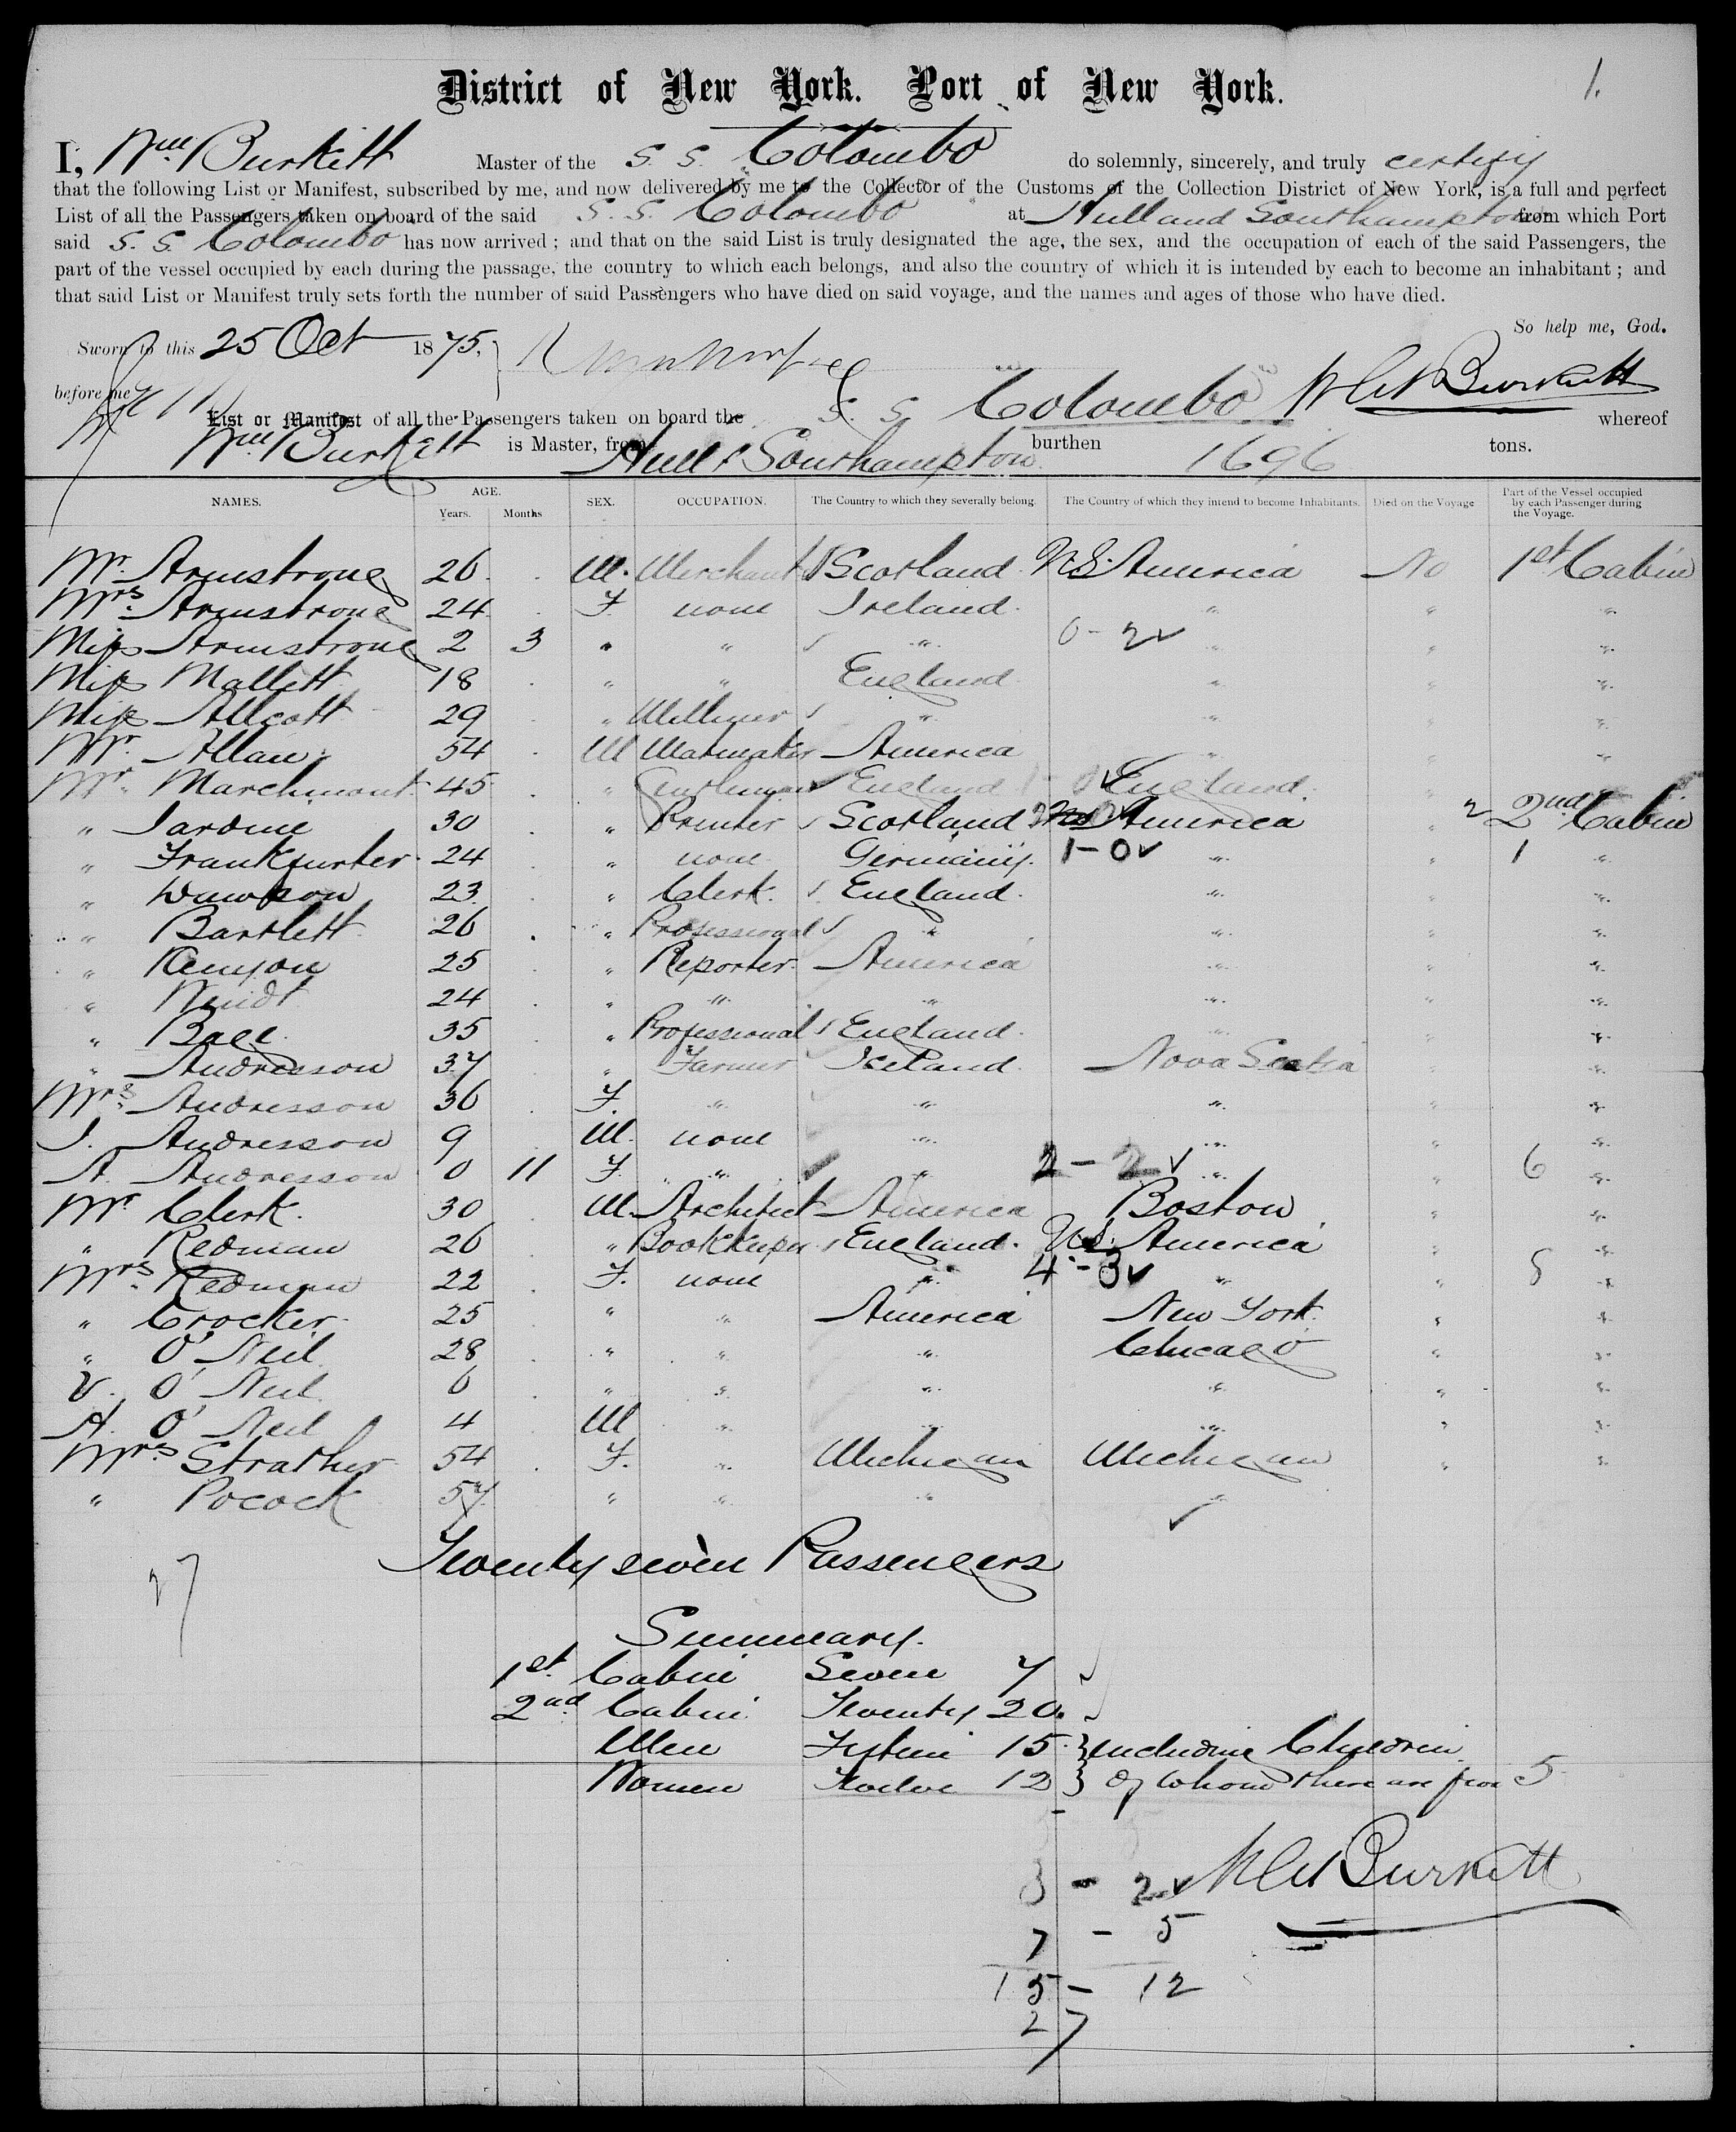 District of New York. Port of New York. 1.
I, Wm. Burkitt Master of the S. S. Colombo do solemnly, sincerely, and truly certify
that the following List or Manifest, subscribed by me, and now delivered by me to the Collector of the Customs of the Collection District of New York, is a full and perfect
List of all the Passengers taken on board of the said S. S. Colombo at Hull and Southampton from which Port
said S. S. Colombo has now arrived; and that on the said List is truly designated the age, the sex, and the occupation of each of the said Passengers, the
part of the vessel occupied by each during the passage, the country to which each belongs, and also the country of which it is intended by each to become an inhabitant; and
that said List or Manifest truly sets forth the number of said Passengers who have died on said voyage, and the names and ages of those who have died.
So help me, God.
Sworn to this 25 Oct 1875,
before me
Wm Burkitt
List or Manifest of all the Passengers taken on board the S. S. Colombo whereof
Wm. Burkitt is Master, from Hull & Southampton burthen 1696 tons.
NAMES. AGE. Years. Months SEX. OCCUPATION. The Country to which they severally belong. The Country of which they intend to become Inhabitants. Died on the Voyage Part of the Vessel occupied by each Passenger during the Voyage.
Mr. Armstrong 26 M. Merchant Scotland U.S. America No 1st Cabin
Mrs. Armstrong 24 F. none Ireland " " "
Miss Armstrong 2 3 " " " 0-2 " " "
Miss Mallett 18 " " England " " "
Miss Allcott 29 " Milliner " " " "
Mr. Allan 54 M Matmaker America " " "
Mr. Marchmont 45 " Gentleman England England "
" Jardine 30 " Printer Scotland America " 2 2nd Cabin
" Frankfurter 24 " none Germany 1-0 " 1 "
" Dawson 23 " Clerk England " " "
" Bartlett 26 " Professional " " " "
" Kenyon 25 " Reporter America " " "
" Wendt 24 " " " " " "
" Ball 35 " Professional England " " "
" Andresson 37 " Farmer Iceland Nova Scotia " "
Mrs. Andresson 36 F. " " " " "
J. Andresson 9 M. none " " " "
A. Andresson 0 11 F. " " 2-2 " " 6 "
Mr Clerk 30 M. Architect America Boston " "
" Redman 26 " Bookkeeper England U.S. America " "
Mrs. Redman 22 F. none " 4-3 " " 8 "
" Crocker 25 " " America New York " "
" O'Neil 28 " " " Chicago " "
V. O'Neil 6 " " " " " "
A. O'Neil 4 M " " " " "
Mrs. Strather 54 F. " Michigan Michigan " "
" Pocock 57 " " " "
Twenty seven Passengers
27
Summary.
1st Cabin Seven 7
2nd Cabin Twenty 20
Men Fifteen 15 } including Children
Women Twelve 12 } of whom there are five 5
8 - 2 Wm Burkitt
7 - 5
15 - 12
27